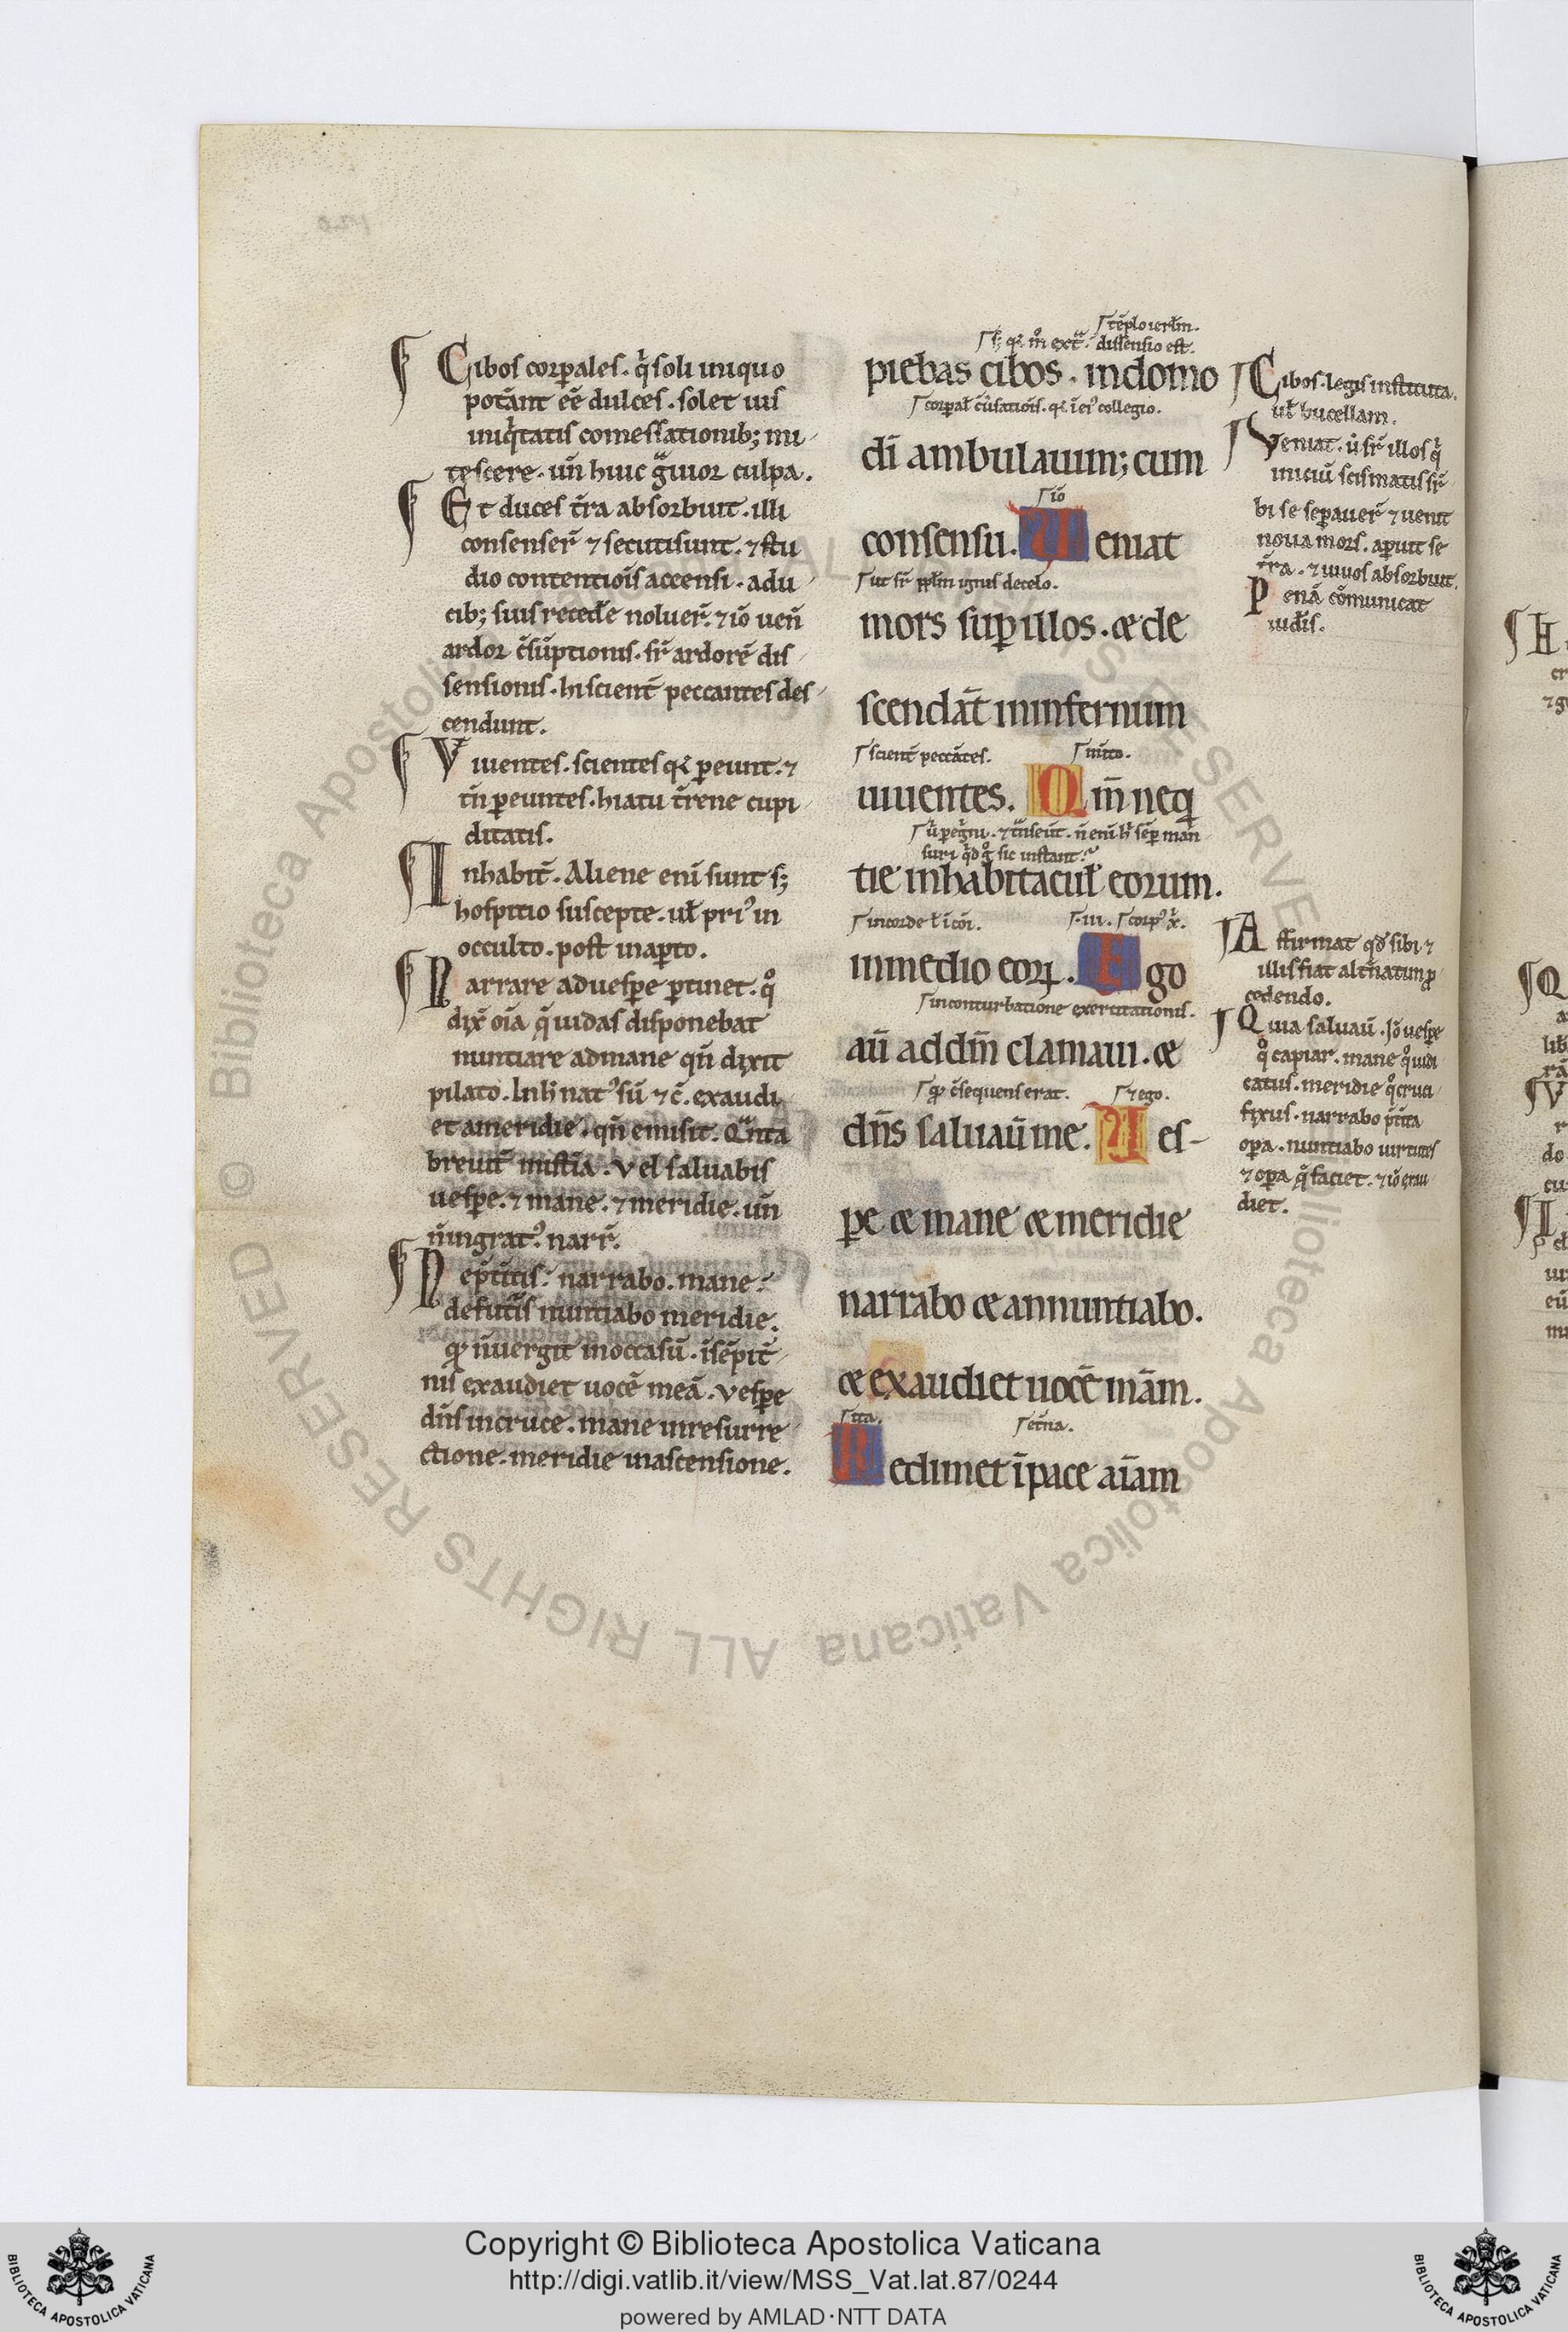 Cibos corp̄ales. q̇ soli iniquo
potāt eē dulces. solet uis
iniq̇tatis comessationib; mi
tescere. un̄ huic g̃uior culpa.
Et duces t̄ra absorbuit. illi
consenser̄ ⁊ secuti sunt. ⁊ stu
dio contentiōis accensi. a du
cib; suis recedere noluer̄. ⁊ iō uen̄
ardor c̄sūptionis. sr̄ ardorē dis
sensionis. hi scient̄ peccantes des
cendunt.
Viuentes. scientes qꝛ pereunt. ⁊
tn̄ pereuntes. hiatu t̄rene cupi
ditatis.
Inhabit̄. Aliene eni sunt s;
hospitio suscepte. ul̄ pri᷒ in
occulto. post in aꝑto.
Narrare ad uesꝑe ꝑtinet. q̊
dix̄ oīa q̄ iudas disponebat
nuntiare ad mane qn̄ dixit
pilato. In h̄ nat᷒ sū ⁊ c̄. exaudi
et a meridie. qn̄ emisit. Q̃nta
breuit̄ mistia. Vel saluabis
uesꝑe. ⁊ mane. ⁊ meridie. un̄
n̄ ingrat᷒. narr̄.
De p̄titis: narrabo. mane:
de fut̄is nuntiabo meridie.
qꝛ n̄ uergit in occasū. ī sēpit̄
nis exaudiet uocē meā. Vesꝑe
dn̄s in cruce. mane in resurre
ctione. meridie in ascensione.
tēplo ierl̄m.
s; qꝛ m̊ ext̃. dissensio est.
piebas cibos. in domo
corpal̄ c̄usatiōis. qꝛ ī ei᷒ collegio.
dī ambulauim; cum
iō
consensu. Ueniat
ut sr̄ ppl̄m ignis de celo.
mors suꝑ illos. & de
scendāt in infernum
scient̄ peccātes.
mito.
uiuentes. Qm̄ neq
tie in habitacul̄ eorum.
in corde ł ī cōi.
.iii. corp᷒ x̄.
in medio eoꝝ. Ego
in conturbatione exercitationis.
aū ad dm̄ clamaui. &
qꝛ c̄sequens erat. ⁊ ego.
dn̄s saluaū me. Ues-
pe & mane & meridie
narrabo & annuntiabo.
& exaudiet uocē māam.
ita.
et̄na.
Redimet ī pace aīam
Cibos. legis instituta.
ul̄ bucellam.
Veniat. ů sr̄ illos q̇
iniciū scismatis sr̄
bi se seꝑauer̄ ⁊ uenit
noua mors. aꝑuit se
t̄ra. ⁊ uiuos absorbuit.
Penā cōmunicat
iudeis.
Affirmat qd̄ sibi ⁊
illis fiat alt̄natim p̄
cedendo.
Quia saluaū. Iō uesꝑe
q̊ capiar. mane q̊ iudi
catus. meridie q̊ cruci
fixus. narrabo p̄t̄ita
oꝑa. nuntiabo uirtutes
⁊ oꝑa q̄ faciet. ⁊ iō exau
diet.
Copyright © Biblioteca Apostolica Vaticana
http://digi.vatlib.it/view/MSS_Vat.lat.87/0244
powered by AMLAD·NTT DATA
BIBLIOTECA APOSTOLICA VATICANA
BIBLIOTECA APOSTOLICA VATICANA